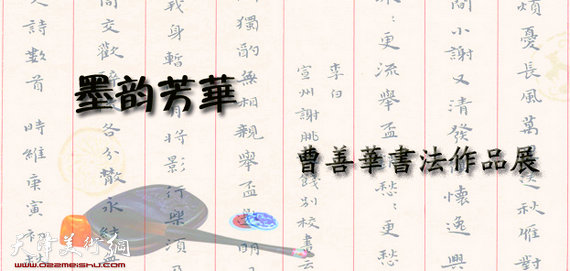 墨韵芳華
曹善華書法作品展
煩憂長風萬
送秋雁對
間小謝又清發
懷逸興
更流舉盃
愁更愁
李白
宣州謝朓
餞別校書雲
獨酌無相親舉盃
明
我身暫
月將影行樂須及
交歡
各分散永結
詩數首 時維庚寅
天津美術網
www.022meishu.com